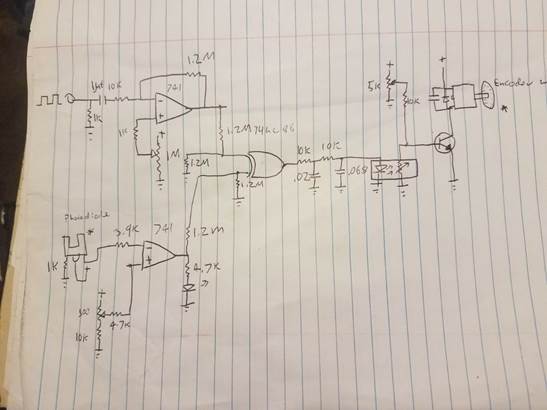 1.2M
1µf 10K
741
1K
1K
1M
1.2M
74HC86
1.2M
1.2M
10K 10K
.02
.068
+
5K
10K
+
Encoder
*
Photodiode
*
1K
+
3.9K
741
1.2M
4.7K
+
500
4.7K
10K